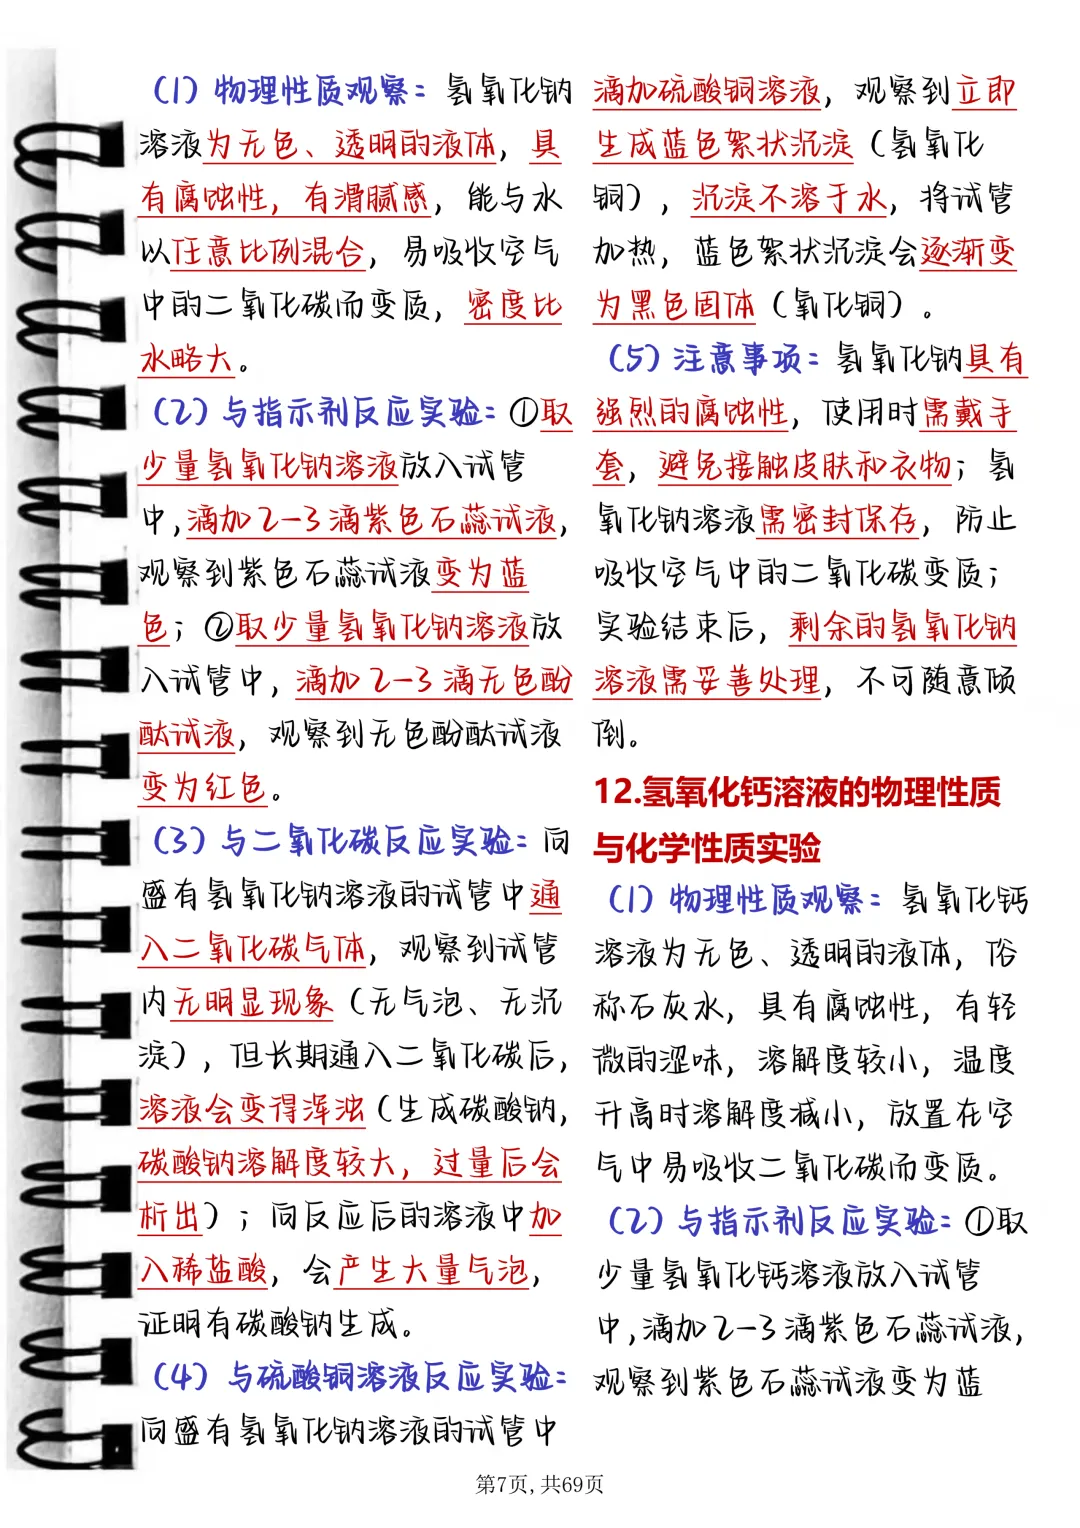 （1）物理性质观察：氢氧化钠
溶液为无色、透明的液体，具
有腐蚀性，有滑腻感，能与水
以任意比例混合，易吸收空气
中的二氧化碳而变质，密度比
水略大。
（2）与指示剂反应实验：①取
少量氢氧化钠溶液放入试管
中，滴加2-3滴紫色石蕊试液，
观察到紫色石蕊试液变为蓝
色；②取少量氢氧化钠溶液放
入试管中，滴加2-3滴无色酚
酞试液，观察到无色酚酞试液
变为红色。
（3）与二氧化碳反应实验：向
盛有氢氧化钠溶液的试管中通
入二氧化碳气体，观察到试管
内无明显现象（无气泡、无沉
淀），但长期通入二氧化碳后，
溶液会变得浑浊（生成碳酸钠，
碳酸钠溶解度较大，过量后会
析出）；向反应后的溶液中加
入稀盐酸，会产生大量气泡，
证明有碳酸钠生成。
（4）与硫酸铜溶液反应实验：
向盛有氢氧化钠溶液的试管中
滴加硫酸铜溶液，观察到立即
生成蓝色絮状沉淀（氢氧化
铜），沉淀不溶于水，将试管
加热，蓝色絮状沉淀会逐渐变
为黑色固体（氧化铜）。
（5）注意事项：氢氧化钠具有
强烈的腐蚀性，使用时需戴手
套，避免接触皮肤和衣物；氢
氧化钠溶液需密封保存，防止
吸收空气中的二氧化碳变质；
实验结束后，剩余的氢氧化钠
溶液需妥善处理，不可随意倾
倒。
12.氢氧化钙溶液的物理性质
与化学性质实验
（1）物理性质观察：氢氧化钙
溶液为无色、透明的液体，俗
称石灰水，具有腐蚀性，有轻
微的涩味，溶解度较小，温度
升高时溶解度减小，放置在空
气中易吸收二氧化碳而变质。
（2）与指示剂反应实验：①取
少量氢氧化钙溶液放入试管
中，滴加2-3滴紫色石蕊试液，
观察到紫色石蕊试液变为蓝
第7页，共69页